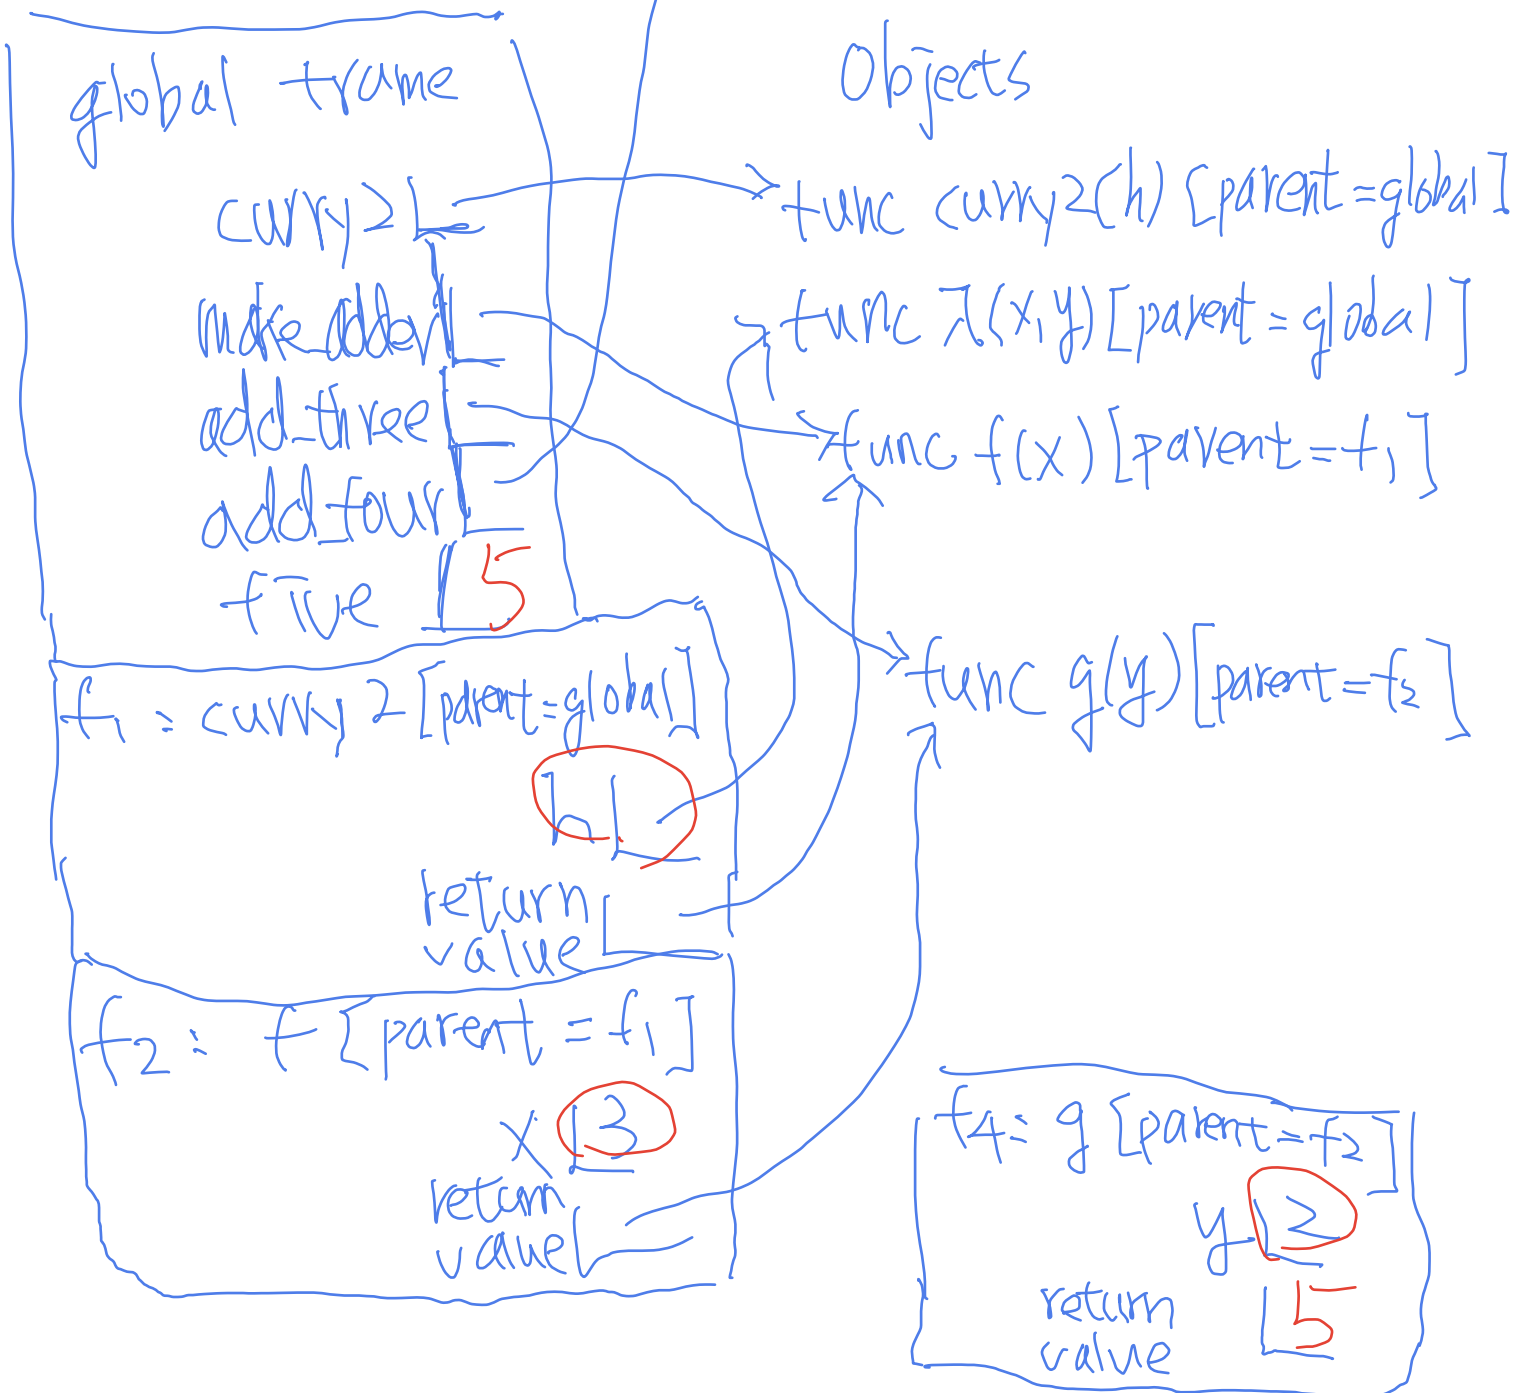 global frame
curry2
make_adder
add_three
add_four
five 5
f1: curry2 [parent=global]
h
return
value
f2: f [parent=f1]
x 3
return
value
Objects
func curry2(h) [parent=global]
func λ(x,y) [parent=global]
func f(x) [parent=f1]
func g(y) [parent=f2]
f4: g [parent=f2]
y 2
return
value 5